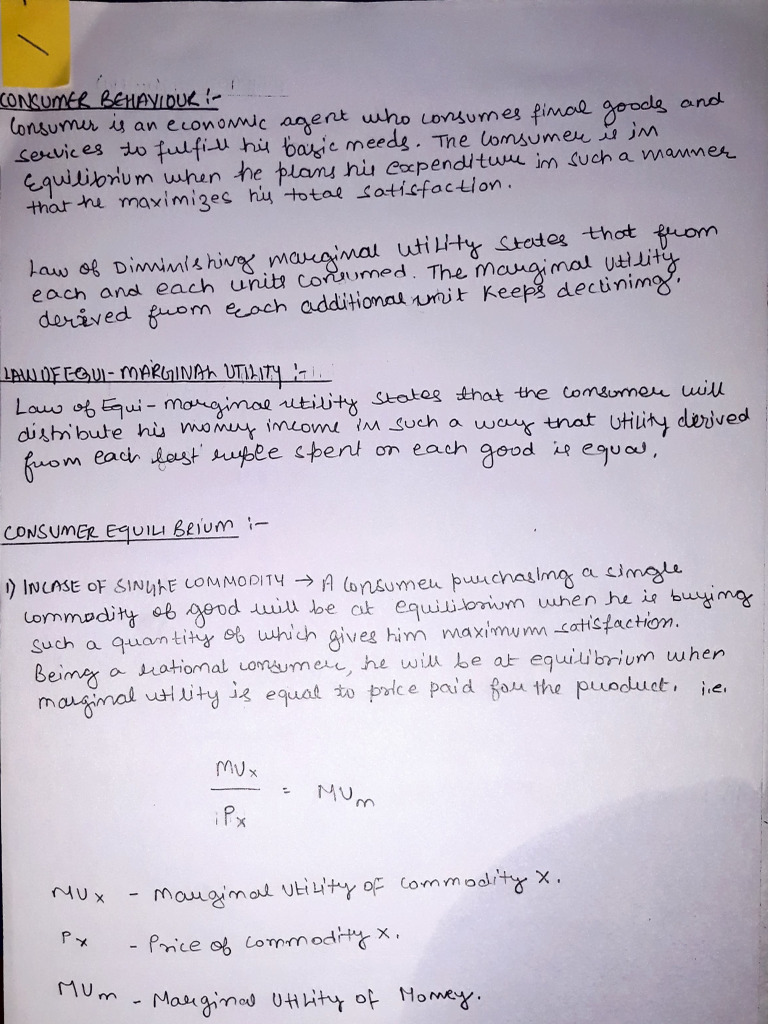 CONSUMER BEHAVIOUR :-
Consumer is an economic agent who consumes final goods and
services to fulfill his basic needs. The consumer is in
Equilibrium when he plans his expenditure in such a manner
that he maximizes his total satisfaction.
Law of Diminishing marginal utility states that from
each and each units consumed. The Marginal utility
derived from each additional unit keeps declining.
LAW OF EQUI-MARGINAL UTILITY :-
Law of Equi-marginal utility states that the consumer will
distribute his money income in such a way that utility derived
from each last rupee spent on each good is equal.
CONSUMER EQUILIBRIUM :-
1) INCASE OF SINGLE COMMODITY → A Consumer purchasing a single
commodity of good will be at equilibrium when he is buying
such a quantity of which gives him maximum satisfaction.
Being a rational consumer, he will be at equilibrium when
marginal utility is equal to price paid for the product. i.e.
MUx
= MUm
Px
MUx - Marginal Utility of Commodity X.
Px - Price of Commodity X.
MUm - Marginal Utility of Money.